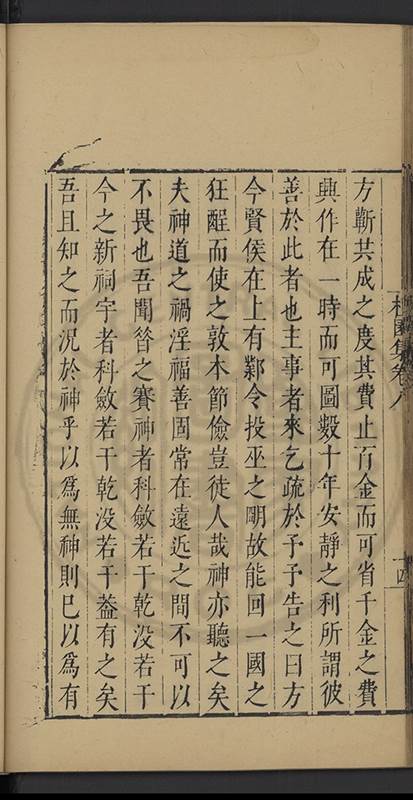 方蘄共成之度其費止百金而可省千金之費
興作在一時而可圖數十年安靜之利所謂彼
善於此者也主事者來乞疏於予予告之曰方
今賢侯在上有鄴令投巫之明故能回一國之
狂酲而使之敦本節儉豈徒人哉神亦聽之矣
夫神道之禍淫福善固常在遠近之間不可以
不畏也吾聞昔之賽神者科斂若干乾没若干
今之新祠宇者科斂若干乾没若干葢有之矣
吾且知之而況於神乎以爲無神則已以爲有
集卷八
十四